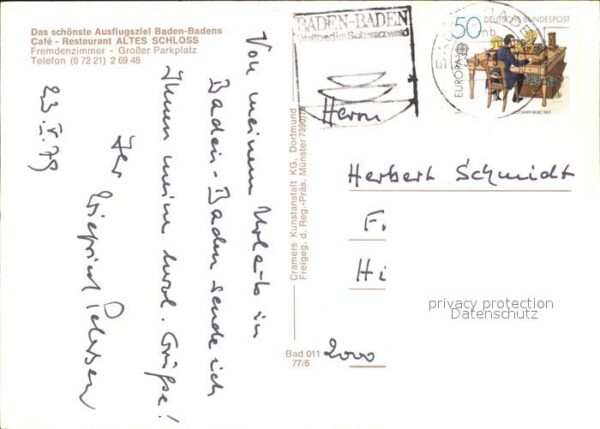 Das schönste Ausflugsziel Baden-Badens
Café - Restaurant ALTES SCHLOSS
Fremdenzimmer - Großer Parkplatz
Telefon (0 72 21) 2 69 48
Von meinem Urlaub in
Baden-Baden sende ich
Ihnen meine herzl. Grüße!
Ihr
Siegfried Petersen
23. V. 79
Cramers Kunstanstalt KG, Dortmund
Freigeg. d. Reg.-Präs. Münster
Bad 011
77/6
BADEN-BADEN
Weltbad im Schwarzwald
50
DEUTSCHE BUNDESPOST
EUROPA
Herrn
Herbert Schmidt
F
Hi
2000
privacy protection
Datenschutz